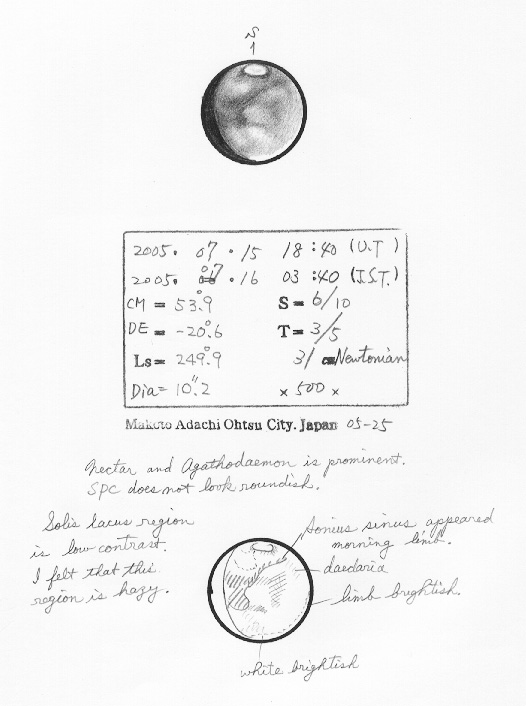 S
2005. 07. 15 18:40 (U.T)
2005. 07. 16 03:40 (J.S.T.)
CM = 53.°9 S = 6/10
DE = -20.°6 T = 3/5
Ls = 249.°9 31 cm Newtonian
Dia = 10."2 × 500 ×
Makoto Adachi Ohtsu City. Japan 05-25
Nectar and Agathodaemon is prominent.
SPC does not look roundish.
Solis lacus region
is low contrast.
I felt that this
region is hazy.
Aonius sinus appeared
morning limb.
daedaria
limb brightish.
white brightish